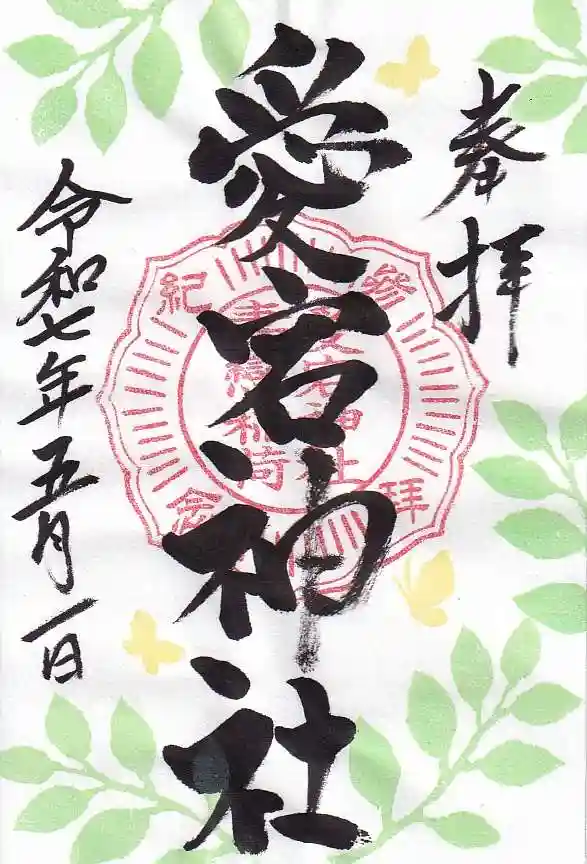 奉拝
愛宕神社
令和七年五月一日
參拝
紀念